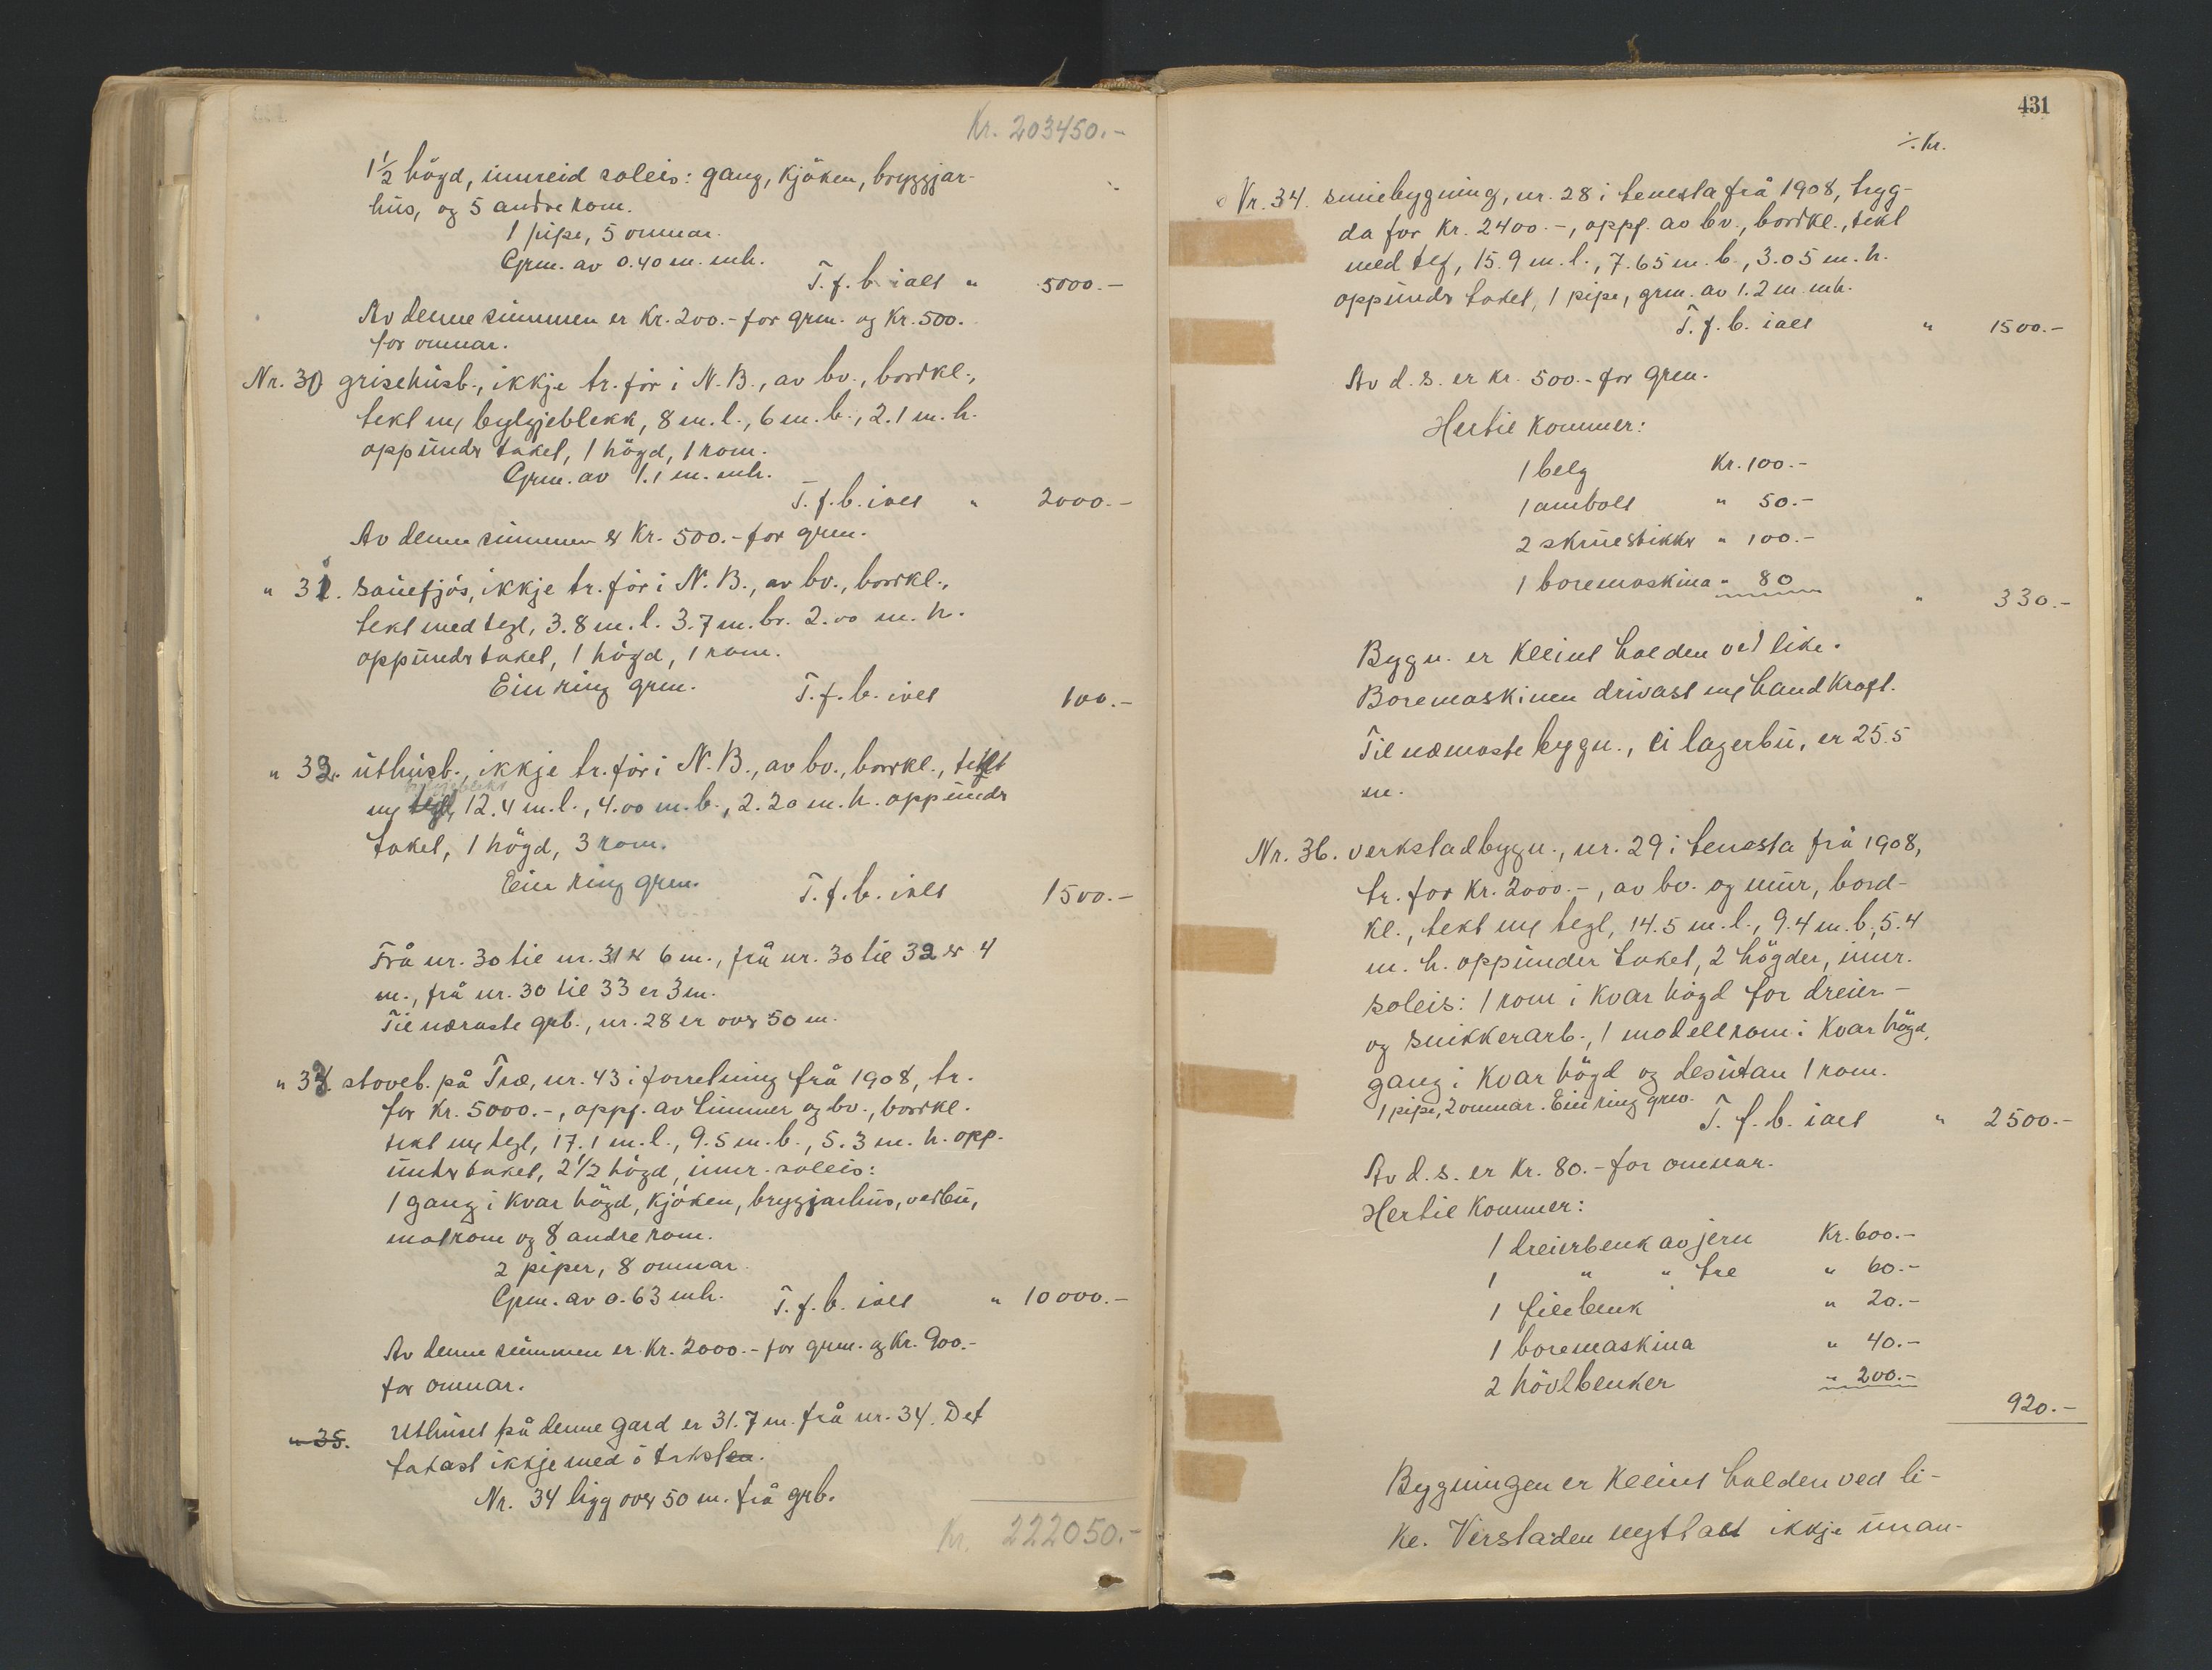 Kr. 203450.-
1½ högd, innreid soleis: gang, kjöken, bryggjar-
hus, og 5 andre rom.
1 pipe, 5 omnar.
Grm. av 0.40 m. mh.
T. f. b. ialt " 5000.-
Av denne summen er kr. 200.- for grm. og kr. 500.
for omnar.
Nr. 30 grisehusb., ikkje tr. för i N. B., av bv., bordkl.,
tekt m/ bylgjeblekk, 8 m. l., 6 m. b., 2.1 m. h.
oppundr taket, 1 högd, 1 rom.
Grm. av 1.1 m. mh.
T. f. b. ialt " 2000.-
Av denne summen er kr. 500.- for grm.
" 31. sauefjös, ikkje tr. för i N. B., av bv., bordkl.,
tekt med tegl, 3.8 m. l. 3.7 m. br. 2.00 m. h.
oppundr taket, 1 högd, 1 rom.
Ein ring grm.
T. f. b. ialt 100.-
" 32. uthusb., ikkje tr. för i N. B., av bv., bordkl., tekt
bylgjeblekk
m/ tegl, 12.4 m. l., 4.00 m. b., 2.20 m. h. oppundr
taket, 1 högd, 3 rom.
Ein ring grm.
T. f. b. ialt 1500.-
Frå nr. 30 til nr. 31 er 6 m., frå nr. 30 til 32 er 4
m., frå nr. 30 til 33 er 3 m.
Til næraste grb., nr. 28 er over 50 m.
" 33. stoveb. på Træ, nr. 43 i forretning frå 1908, tr.
for kr. 5000.-, oppf. av timmer og bv., bordkl.
tekt m/ tegl, 17.1 m. l., 9.5 m. b., 5.3 m. h. opp-
undr taket, 2½ högd, innr. soleis:
1 gang i kvar högd, kjöken, bryggjarhus, vedbu,
matrom og 8 andre rom.
2 piper, 8 omnar.
Grm. av 0.63 mh.
T. f. b. ialt " 10000.-
Av denne summen er kr. 2000.- for grm. og kr. 900.-
for omnar.
" 35. Uthuset på denne gard er 31.7 m. frå nr. 34. Det
takast ikkje med i taksten.
Nr. 34 ligg over 50 m. frå grb.
Kr. 222050.-
431
⁒ Kr.
Nr. 34. smiebygning, nr. 28 i tenesta frå 1908, tryg-
da for kr. 2400.-, oppf. av bv., bordkl., tekt
med tegl, 15.9 m. l., 7.65 m. b., 3.05 m. h.
oppundr taket, 1 pipe, grm. av 1.2 m mh.
T. f. b. ialt " 1500.-
Av d. s. er kr. 500.- for grm.
Hertil kommer:
1 belg Kr. 100.-
1 ambolt " 50.-
2 skruestikkr " 100.-
1 boremaskina " 80
" 330.-
Bygn. er kleint halden ved like.
Boremaskinen drivast m/ handkraft.
Til næmaste bygn., ei lagerbu, er 25.5
m.
Nr. 36. verkstadbygn., nr. 29 i tenesta frå 1908,
tr. for kr. 2000.-, av bv. og mur, bord-
kl., tekt m/ tegl, 14.5 m. l., 9.4 m. b., 5.4
m. h. oppunder taket, 2 högder, innr.
soleis: 1 rom i kvar högd for dreier-
og snikkerarb., 1 modellrom i kvar högd,
gang i kvar högd og desutan 1 rom.
1 pipe, 2 omnar. Ein ring grm.
T. f. b. ialt " 2500.-
Av d. s. er kr. 80.- for omnar.
Hertil kommer:
1 dreierbenk av jern Kr. 600.-
1 " " tre " 60.-
1 filebenk " 20.-
1 boremaskina " 40.-
2 hövlbenker " 200.-
920.-
Bygningen er kleint halden ved li-
ke. Verstaden nyttast ikkje unan-